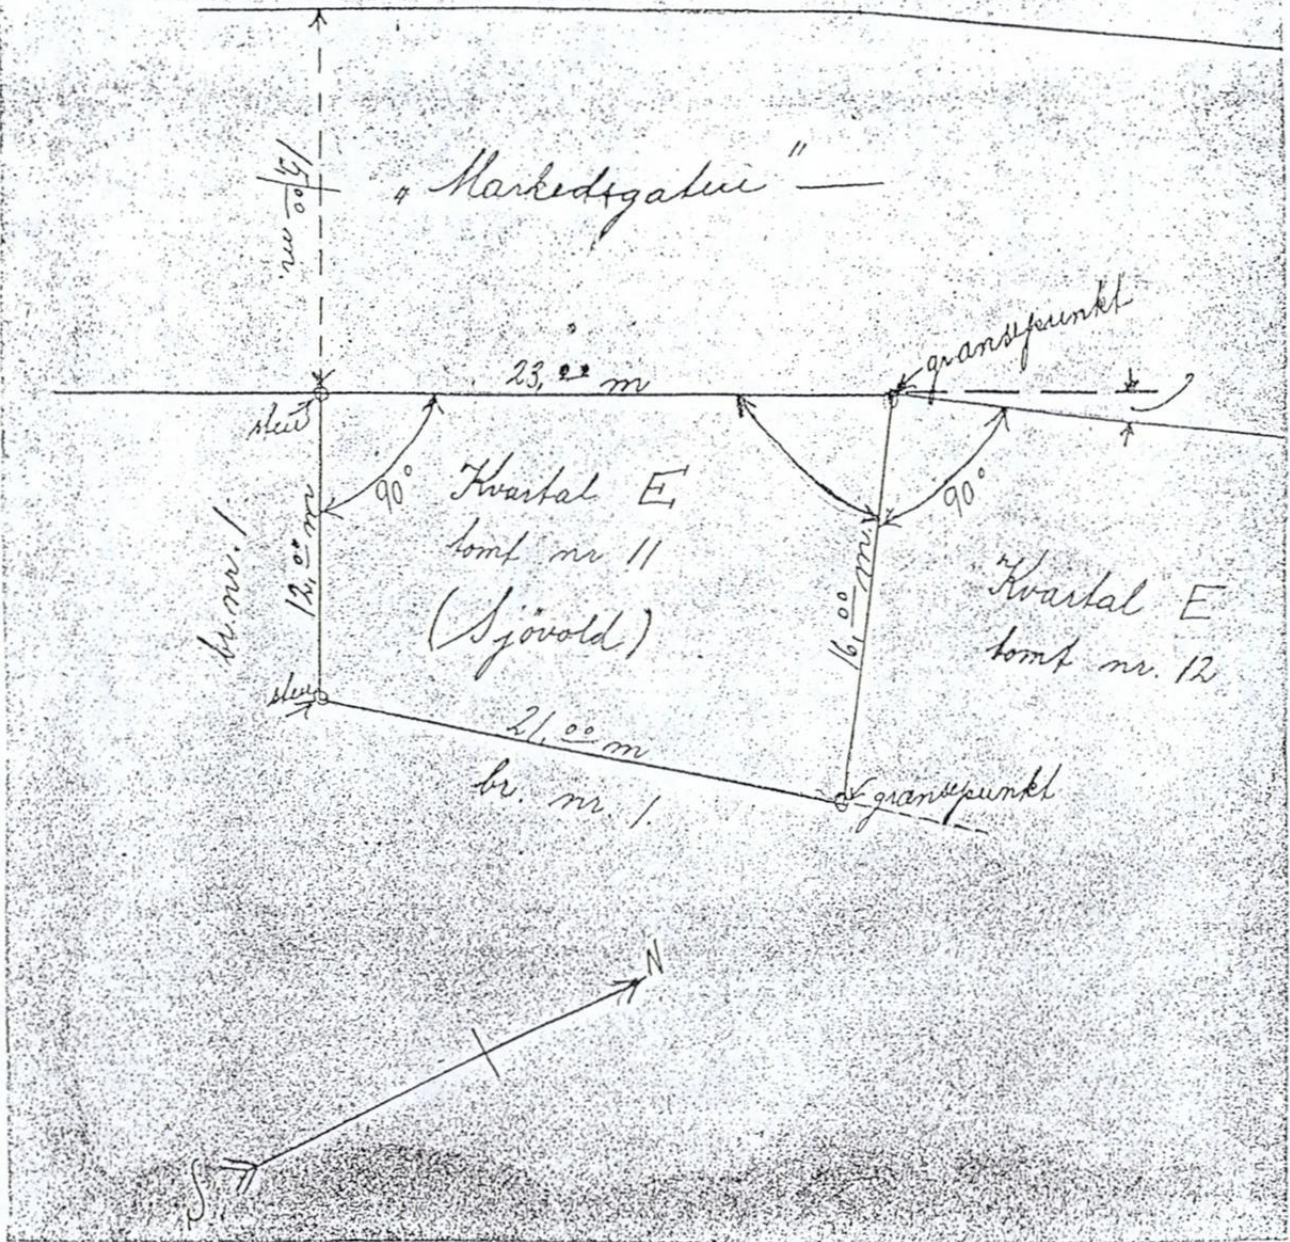 15,00 m.
„Markedsgaten"
23,00 m
grensepunkt
sten
90°
90°
br. nr. 1
12,00 m
Kvartal E
tomt nr 11
(Sjövold)
16,00 m.
Kvartal E
tomt nr. 12
sten
21,00 m
br. nr. 1.
grensepunkt
N
S